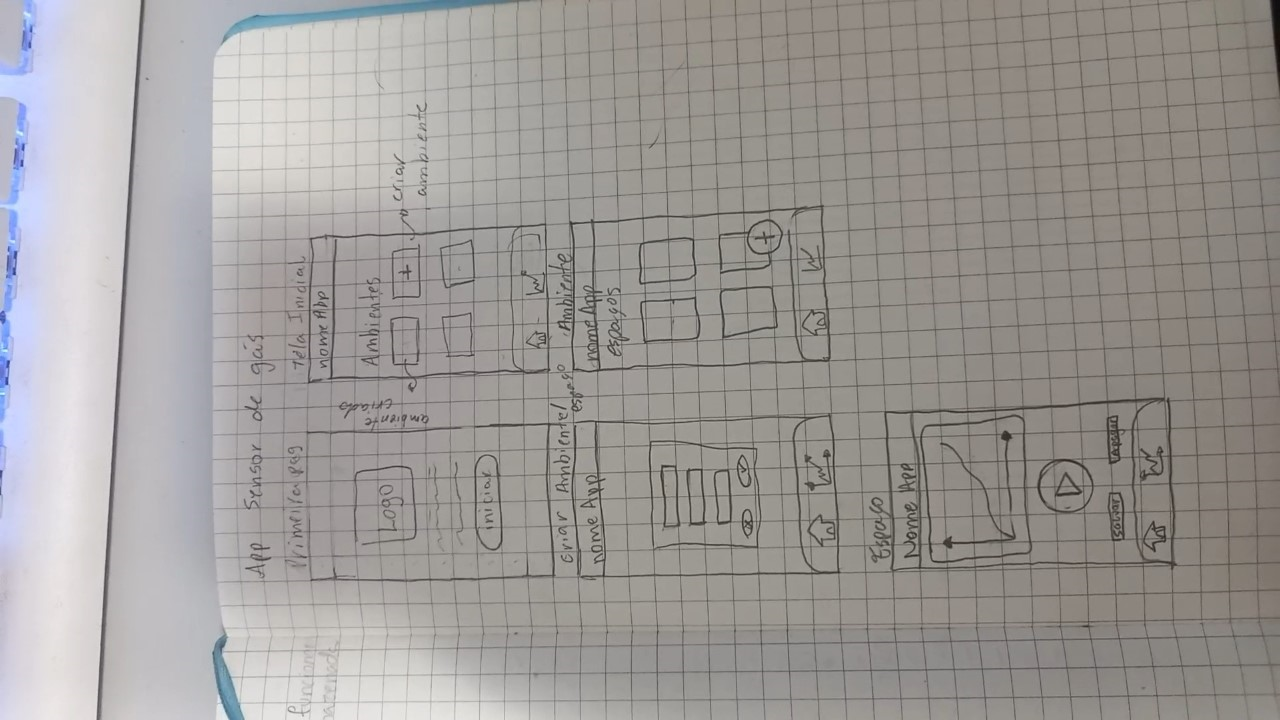 App Sensor de gás
Primeira pag
Logo
iniciar
Tela Inicial
nome App
Ambientes
+
criar
ambiente
ambiente
criado
criar Ambiente/
espaço
nome App
Ambiente
nome App
espaços
+
Espaço
Nome App